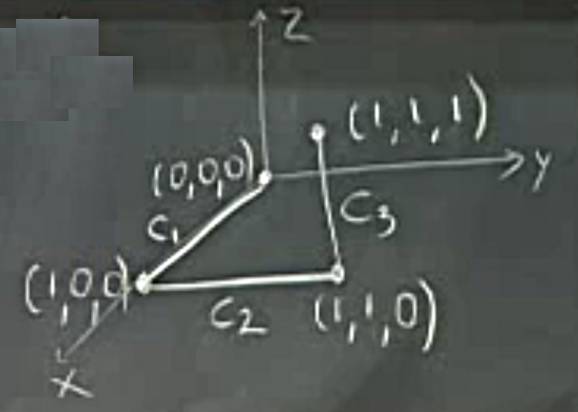 Z
(1,1,1)
(0,0,0)
y
C₁
C₃
(1,0,0)
C₂
(1,1,0)
X